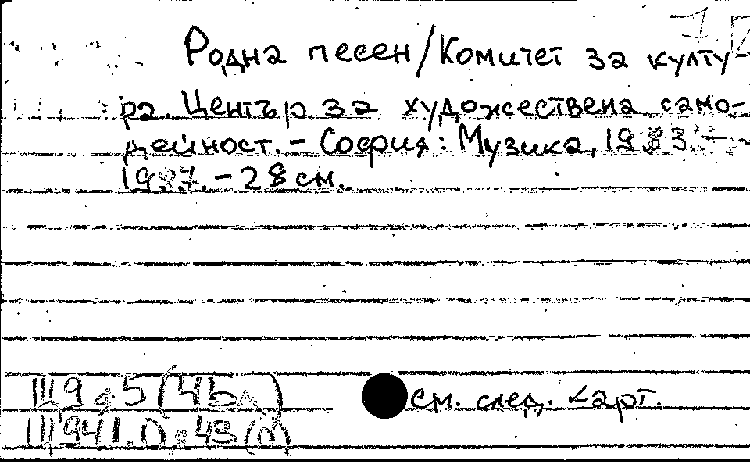 Родна песен / Комитет за култу-
ра. Център за художествена само-
дейност. - София: Музика, 1983. -
1987. - 28 см.
Щ9.5(4Бл)
см. след. карт.